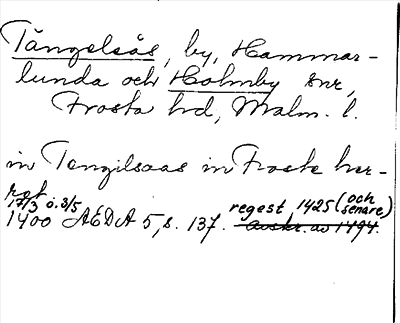 Tängelsås, by, Hammar-
lunda och Holmby snr,
Frosta hd, Malm. l.
in Tengilsaas in Froste her-
ret
17/3 o. 3/5 regest 1425 (och senare)
1400 AEDA 5, s. 137. avskr. av 1494.